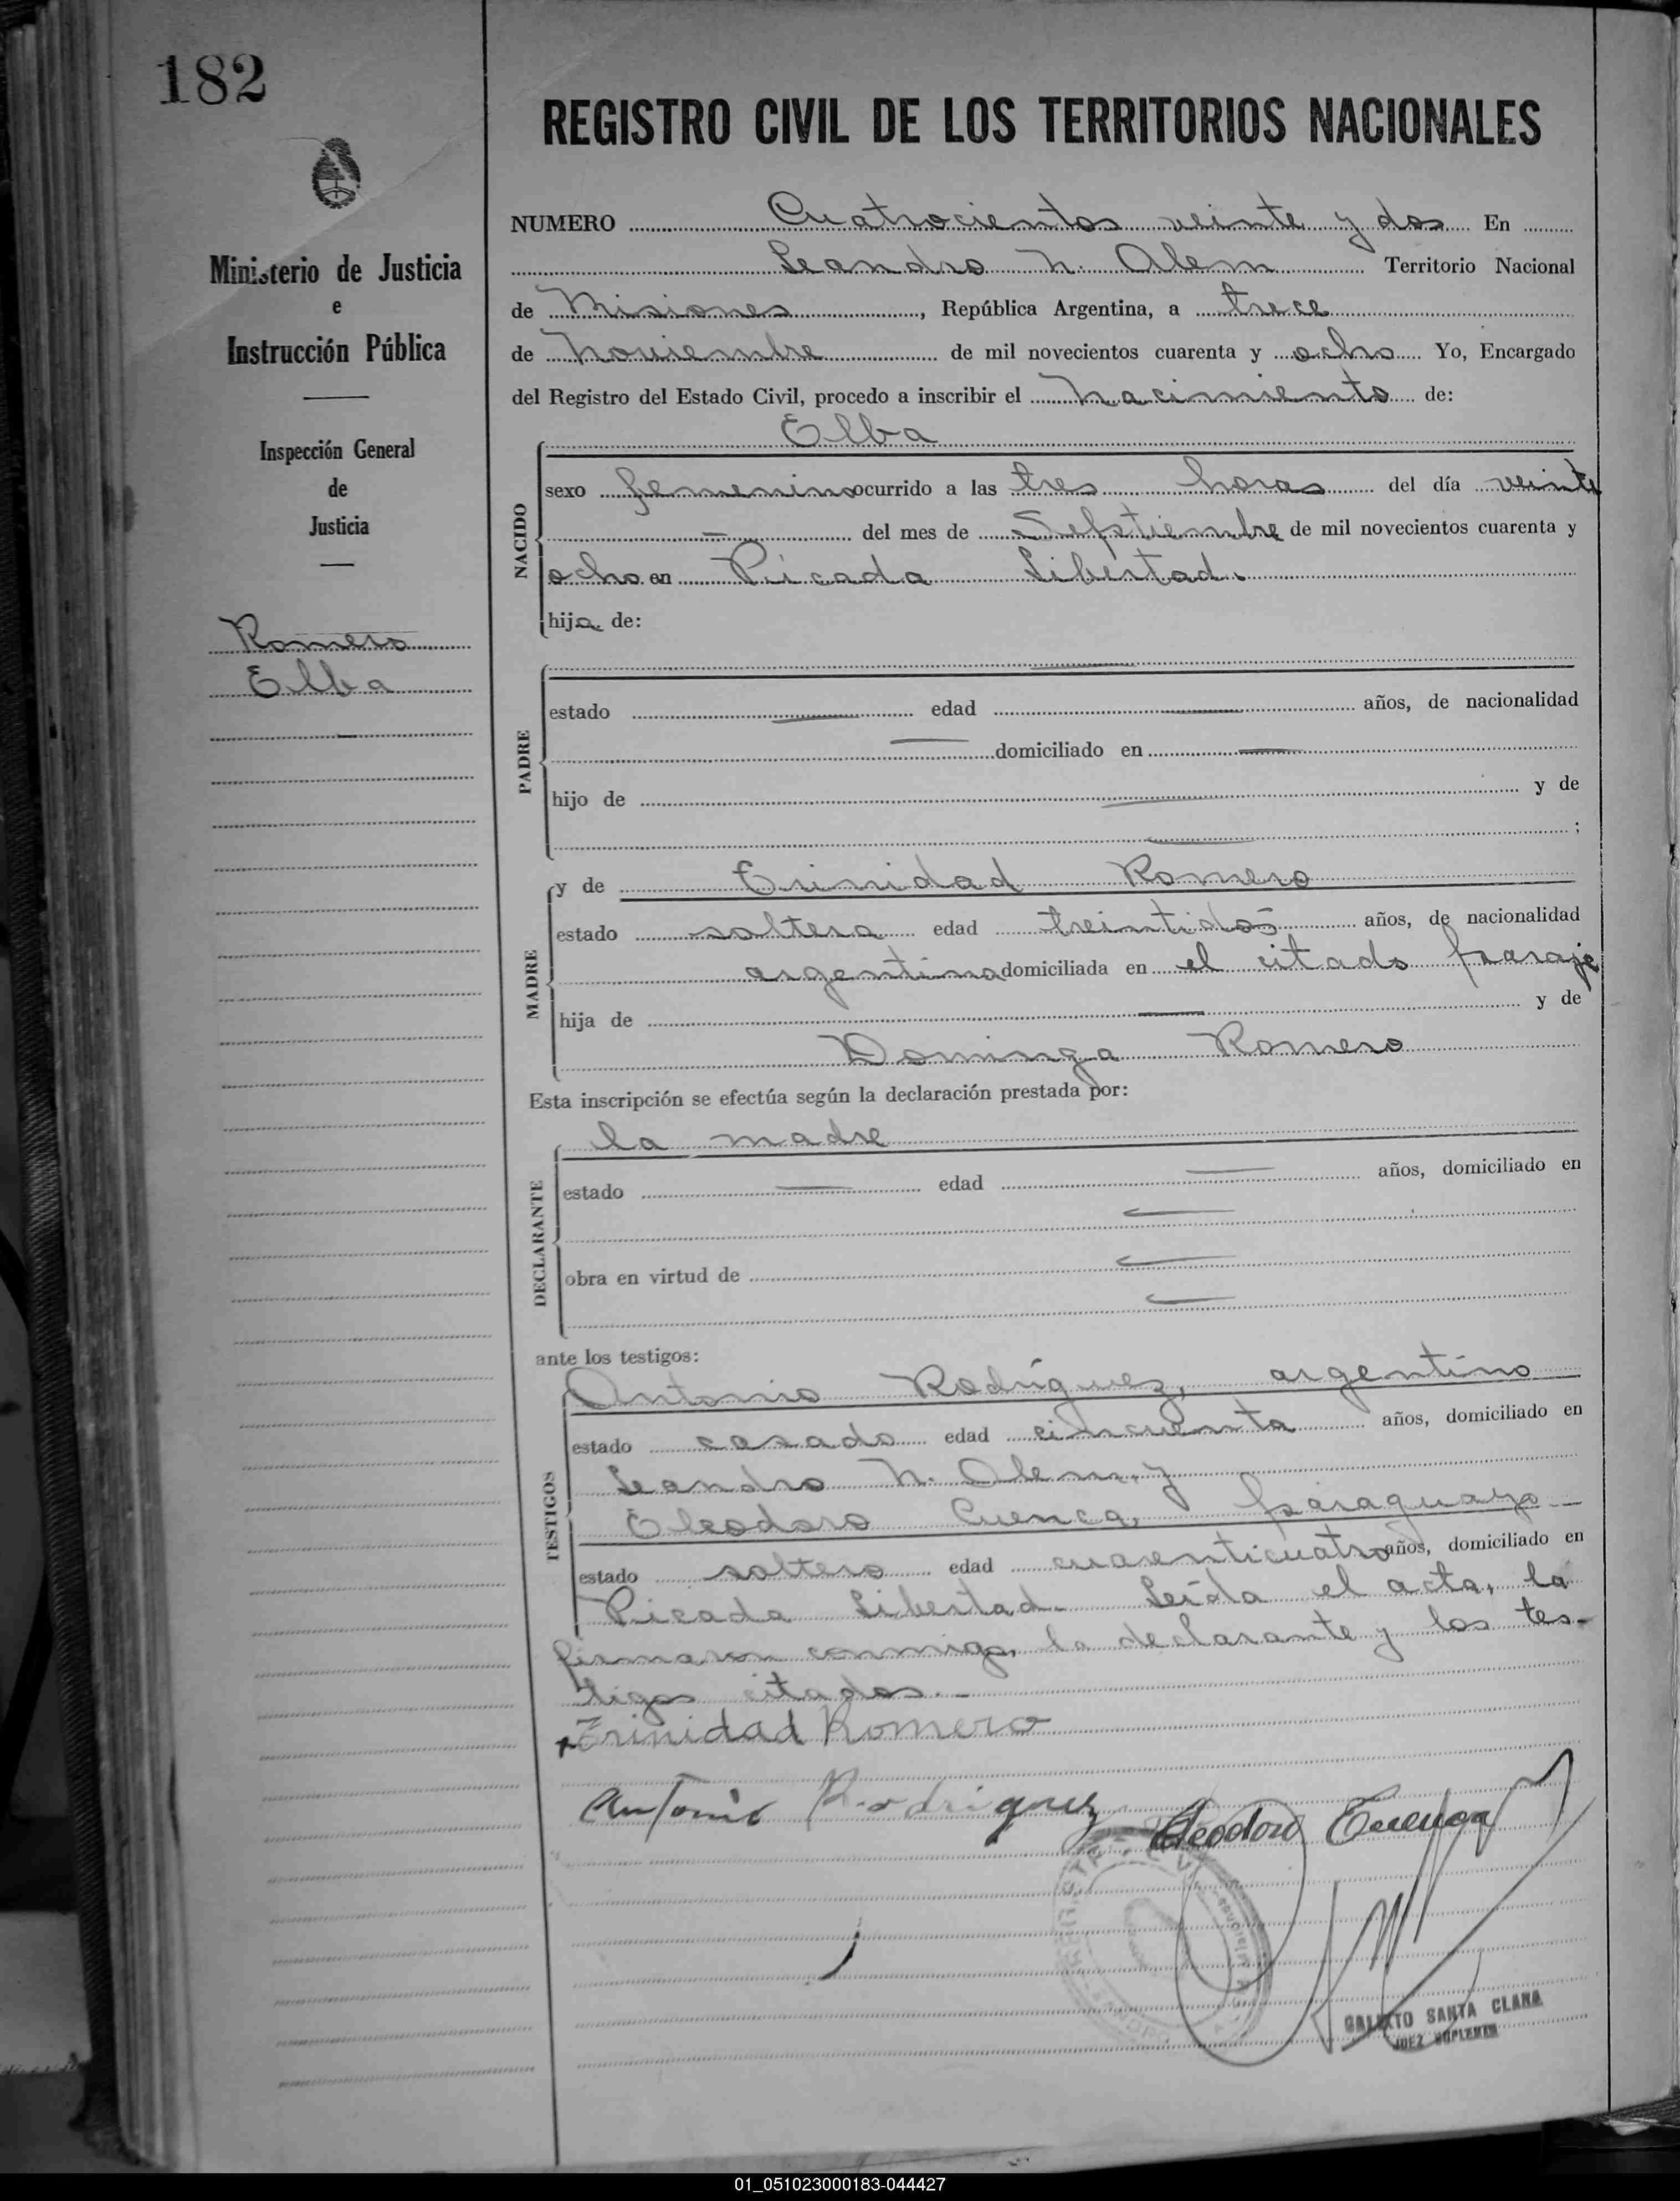 182
REGISTRO CIVIL DE LOS TERRITORIOS NACIONALES
Ministerio de Justicia
e
Instrucción Pública
Inspección General
de
Justicia
Romero
Elba
NUMERO Cuatrocientos veinte y dos En
Leandro N. Alem Territorio Nacional
de Misiones, República Argentina, a trece
de Noviembre de mil novecientos cuarenta y ocho Yo, Encargado
del Registro del Estado Civil, procedo a inscribir el Nacimiento de:
Elba
NACIDO
sexo femenino ocurrido a las tres horas del día veinte
— del mes de Septiembre de mil novecientos cuarenta y
ocho en Picada Libertad.
hija de:
PADRE
estado — edad — años, de nacionalidad
— domiciliado en —
hijo de — y de
— ;
MADRE
y de Trinidad Romero
estado soltera edad treintidós años, de nacionalidad
argentina domiciliada en el citado paraje
hija de — y de
Dominga Romero
Esta inscripción se efectúa según la declaración prestada por:
DECLARANTE
la madre
estado — edad — años, domiciliado en
—
obra en virtud de —
—
ante los testigos:
TESTIGOS
Antonio Rodríguez, argentino
estado casado edad cincuenta años, domiciliado en
Leandro N. Alem, y
Eleodoro Cuenca, paraguayo
estado soltero edad cuarenticuatro años, domiciliado en
Picada Libertad. Leída el acta, la
firmaron conmigo, la declarante y los tes-
tigos citados.-
Trinidad Romero
Antonio Rodriguez
Eleodoro Cuenca
GALIXTO SANTA CLARA
JUEZ SUPLENTE
01_051023000183-044427